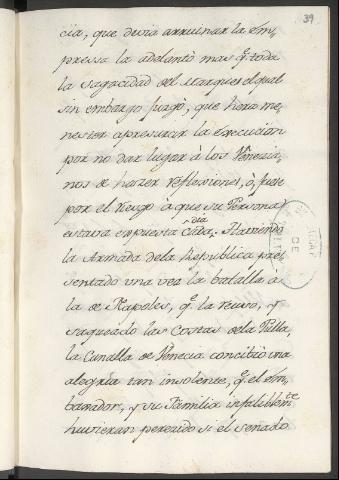 39
cia, que devia arruinar la em,
pressa la adelantò mas q̃. toda
la sagacidad del Marques el qual
sin embargo juzgò, que hera me,
nester apresurar la execucion
por no dar lugar à los Venezia,
nos de hazer reflexiones, ò, fuese
por el riesgo à que su Persona
estava expuesta cada dia. Haviendo
la Armada dela Republica pre
sentado una vez la batalla à
la de Napoles, q̃. la reuso, y
saqueado las Costas dela Pulla,
la Canalla de Venecia concibiò una
alegria tan insolente, q̃. el Em,
baxador, y su Familia infaliblemte.
huvieran perecido si el Senado